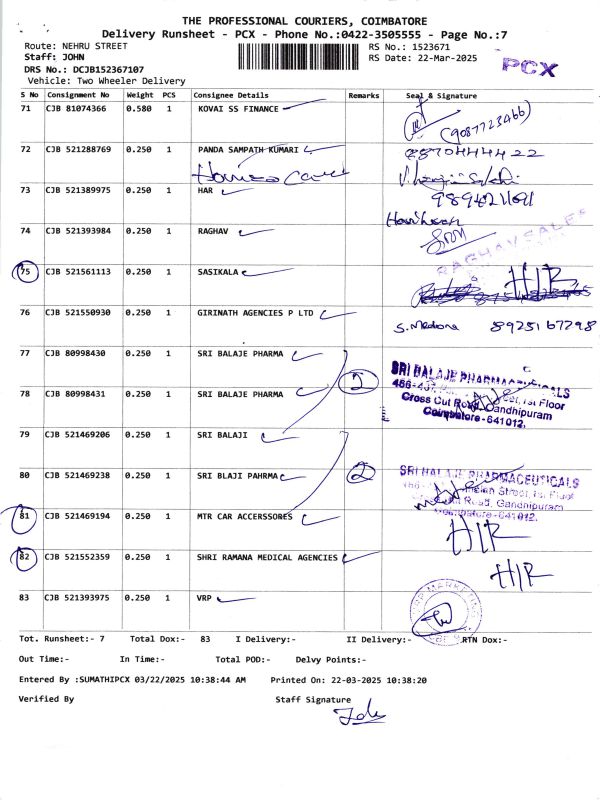 THE PROFESSIONAL COURIERS, COIMBATORE
Delivery Runsheet - PCX - Phone No.:0422-3505555 - Page No.:7
Route: NEHRU STREET RS No.: 1523671
Staff: JOHN RS Date: 22-Mar-2025
PCX
DRS No.: DCJB152367107
Vehicle: Two Wheeler Delivery
S No Consignment No Weight PCS Consignee Details Remarks Seal & Signature
71 CJB 81074366 0.580 1 KOVAI SS FINANCE
(9087723466)
72 CJB 521288769 0.250 1 PANDA SAMPATH KUMARI
8870444422
73 CJB 521389975 0.250 1 HAR
9894211691
74 CJB 521393984 0.250 1 RAGHAV
RAGHAV SALES
75 CJB 521561113 0.250 1 SASIKALA H/R
76 CJB 521550930 0.250 1 GIRINATH AGENCIES P LTD
S. Medona 8925167298
77 CJB 80998430 0.250 1 SRI BALAJE PHARMA
2
SRI BALAJE PHARMACEUTICALS
78 CJB 80998431 0.250 1 SRI BALAJE PHARMA
Street, 1st Floor
Cross Cut Road, Gandhipuram
Coimbatore - 641012.
79 CJB 521469206 0.250 1 SRI BALAJI
80 CJB 521469238 0.250 1 SRI BLAJI PAHRMA
2
SRI BALAJE PHARMACEUTICALS
Street, 1st Floor
Road, Gandhipuram
Coimbatore - 641012.
81 CJB 521469194 0.250 1 MTR CAR ACCERSSORES H/R
82 CJB 521552359 0.250 1 SHRI RAMANA MEDICAL AGENCIES H/R
83 CJB 521393975 0.250 1 VRP
VRP MARKETING
Tot. Runsheet:- 7 Total Dox:- 83 I Delivery:- II Delivery:- RTN Dox:-
Out Time:- In Time:- Total POD:- Delvy Points:-
Entered By :SUMATHIPCX 03/22/2025 10:38:44 AM Printed On: 22-03-2025 10:38:20
Verified By Staff Signature